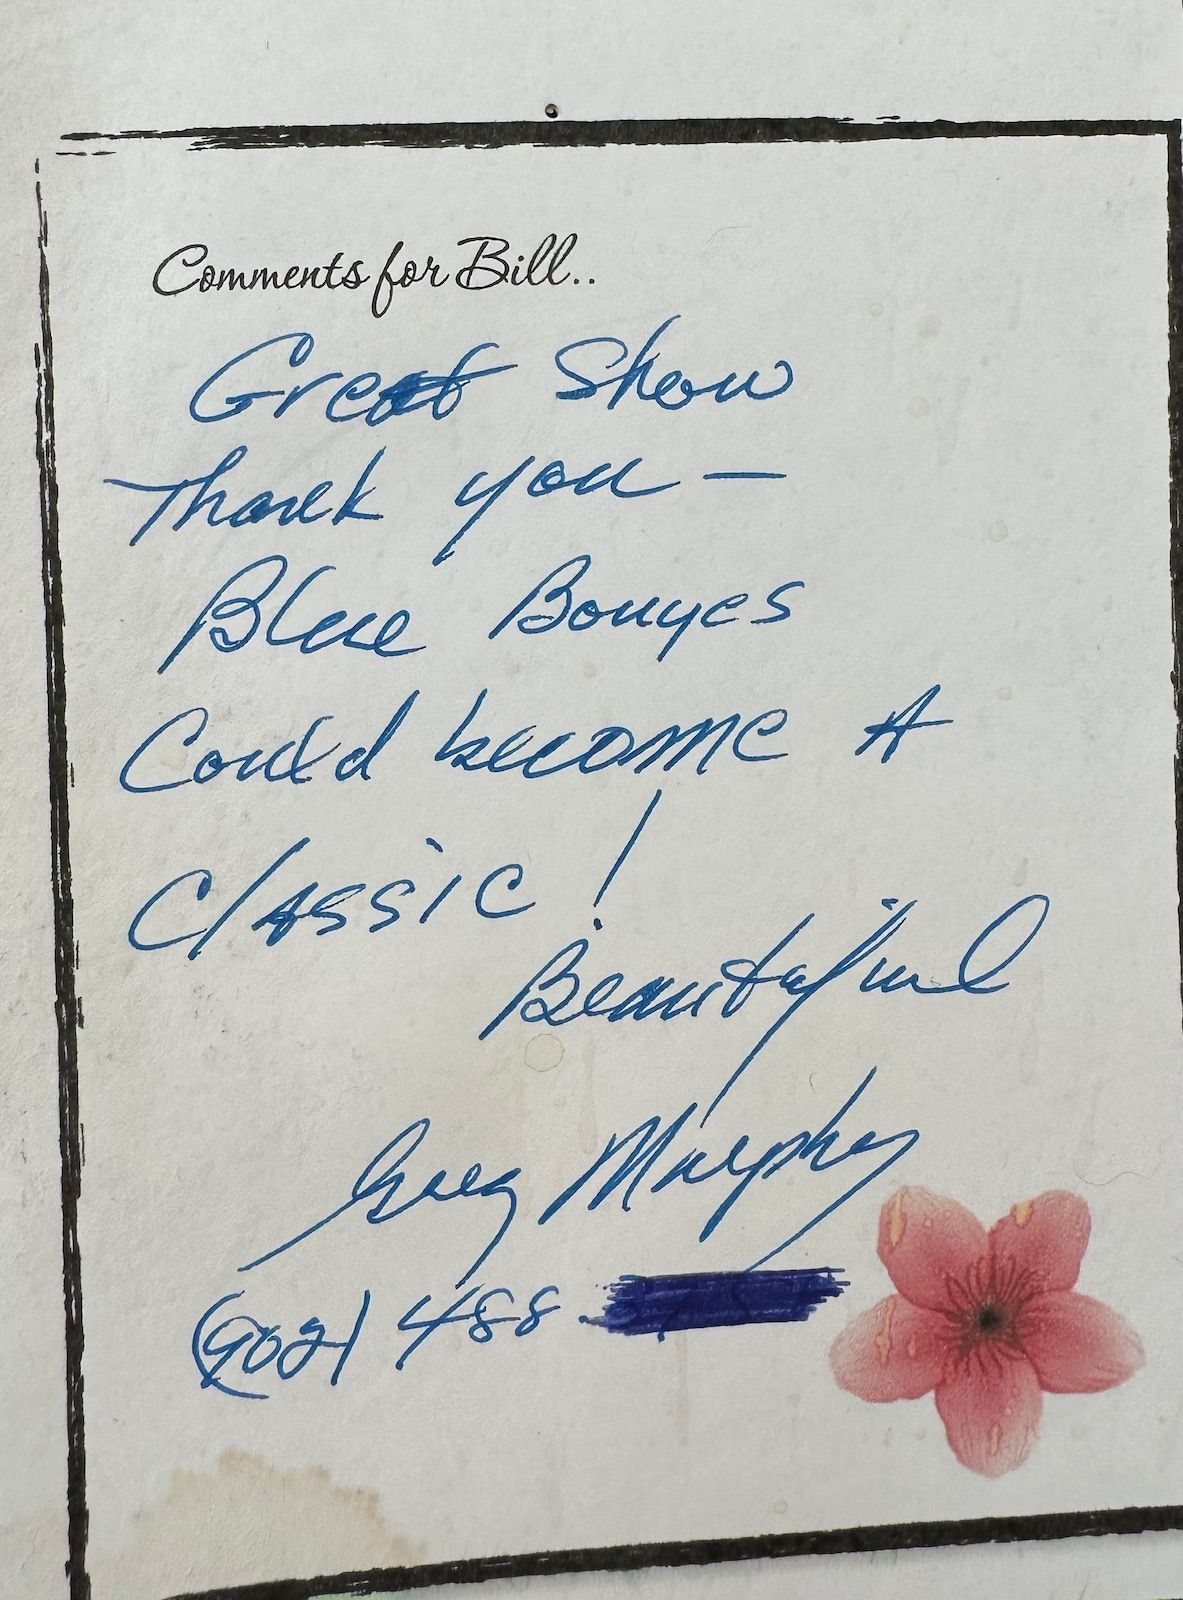 Comments for Bill..
Great Show
Thank you —
Blue Bouyes
Could become A
Classic!
Beautiful
Greg Murphy
(902) 488